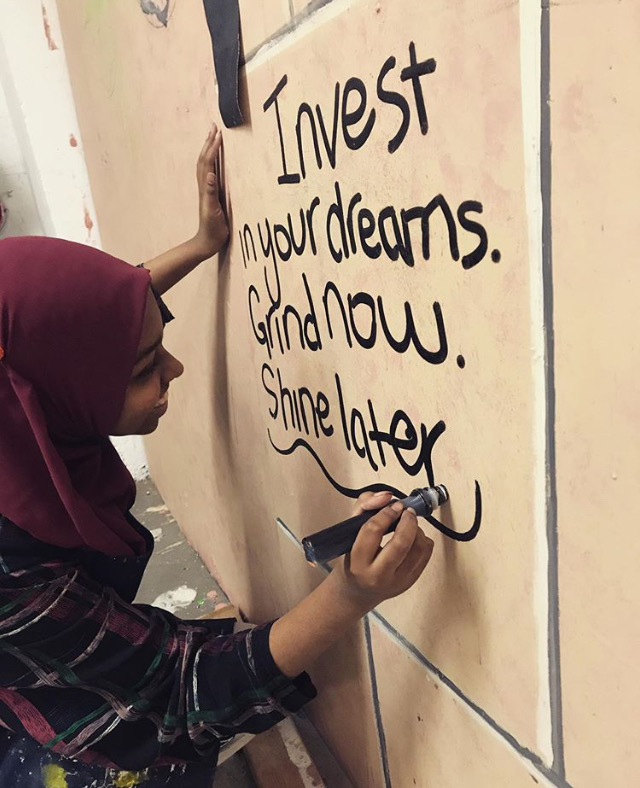 Invest
in your dreams.
Grind now.
Shine later